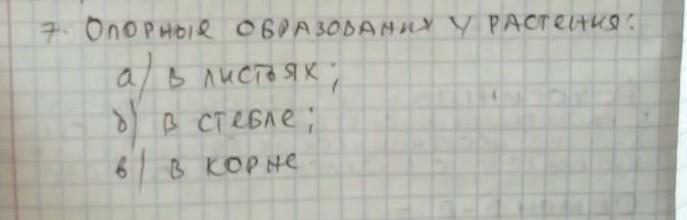 7. Опорные образования у растения:
а) в листьях;
б) в стебле;
в) в корне